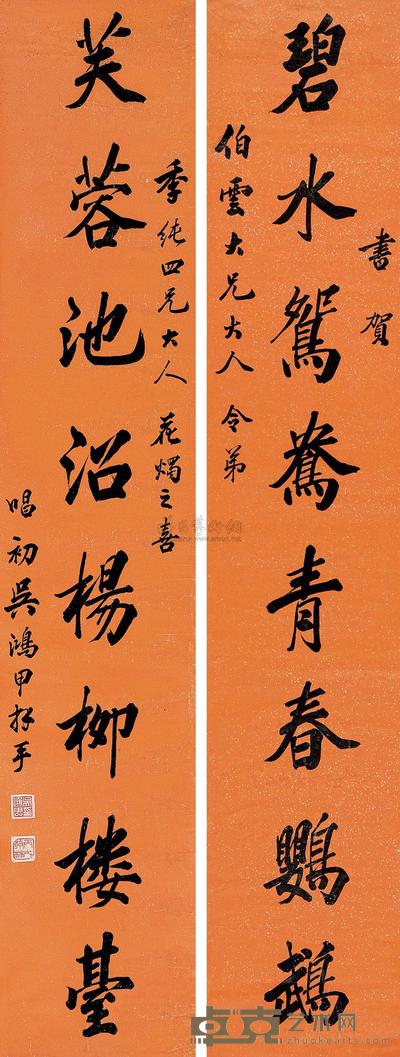 碧水鴛鴦青春鸚鵡
書賀
伯雲大兄大人令弟
芙蓉池沼楊柳樓臺
季純四兄大人花燭之喜
唱初吳鴻甲拜手
卓克艺术网
www.zhuokearts.com